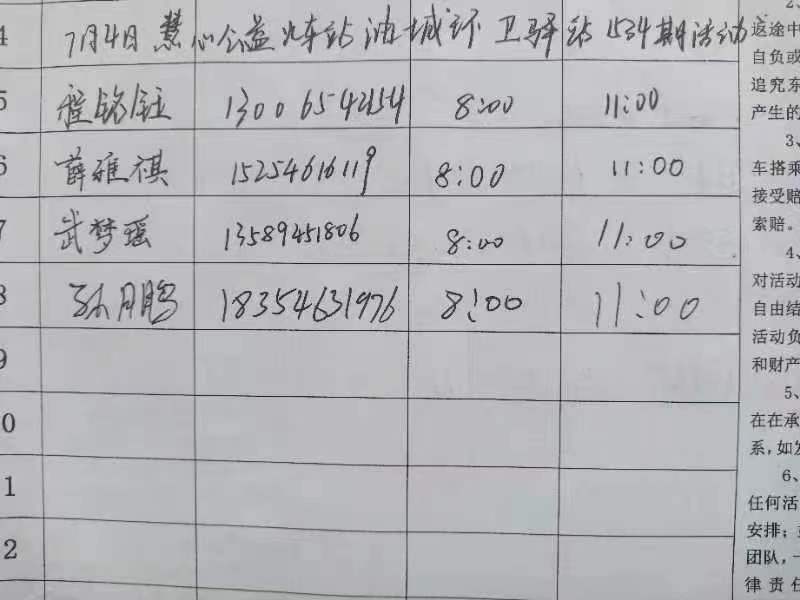 4 7月4日 慧心公益火车站油城环卫驿站1534期活动
5 程铭钰 13006542154 8:00 11:00
6 薛雅祺 15254616119 8:00 11:00
7 武梦瑶 13589451806 8:00 11:00
8 孙月鹏 18354631976 8:00 11:00
9
0
1
2
2、
返途中
自负或
追究东
产生的
3、
车搭乘
接受赔
索赔。
4、
对活动
自由结
活动负
和财产
5、
在在承
系,如发
6、
任何活
安排;
团队,一
律责任